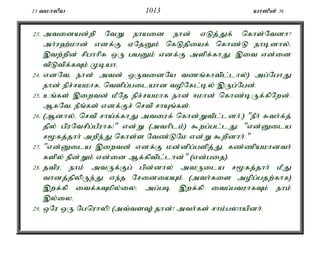 23 வமாலிய 1013 யாஸீன் 36
23. அவனையன்றி வேறு நாயனை நான் எடுத்துக் கொள்வேனா?
அர்ரஹ்மான் எனக்கு ஏதேனும் கெடுதியைக் கொண்டு நாடினால்,
இவற்றின் சிபாரிசு ஒரு பயனும் எனக்கு அளிக்காது. இவை என்னை
விடுவிக்கவும் முடியா.
24. எனவே, நான் அவன் ஒருவனையே வணங்காவிட்டால்) அப்போது
நான் நிச்சயமாக, வெளிப்படையான வழிகேட்டில் இருப்பேன்.
25. உங்கள் இறைவன் மீதே நிச்சயமாக நான் ஈமான் கொண்டிருக்கிறேன்.
ஆகவே, நீங்கள் எனக்குச் செவி சாயுங்கள்.
26. (ஆனால், செவி சாய்க்காது அவரைக் கொன்றுவிட்டனர்.) "நீர் சுவர்க்கத்
தில் பிரவேசிப்பீராக!" என்று (அவரிடம்) கூறப்பட்டது. "என்னுடைய
சமூகத்தார் அறிந்து கொள்ள வேண்டுமே என்று கூறினார்."
27. "என்னுடைய இறைவன் எனக்கு மன்னிப்பளித்து, கண்ணியமானவர்
களில் நின்றும் என்னை ஆக்கிவிட்டான்" (என்பதை).
28. தவிர, நாம் அவருக்குப் பின்னால் அவருடைய சமூகத்தார் மீது
வானத்திலிருந்து எந்த சேனையையும் (அவர்களை அழிப்பதற்காக)
இறக்கி வைக்கவுமில்லை; அப்படி இறக்கி வைப்பவராகவும் நாம்
இல்லை.
29. ஒரே ஒரு பேரொலி! (அவ்வளவு) தான்! அவர்கள் சாம்பலாயினர்.